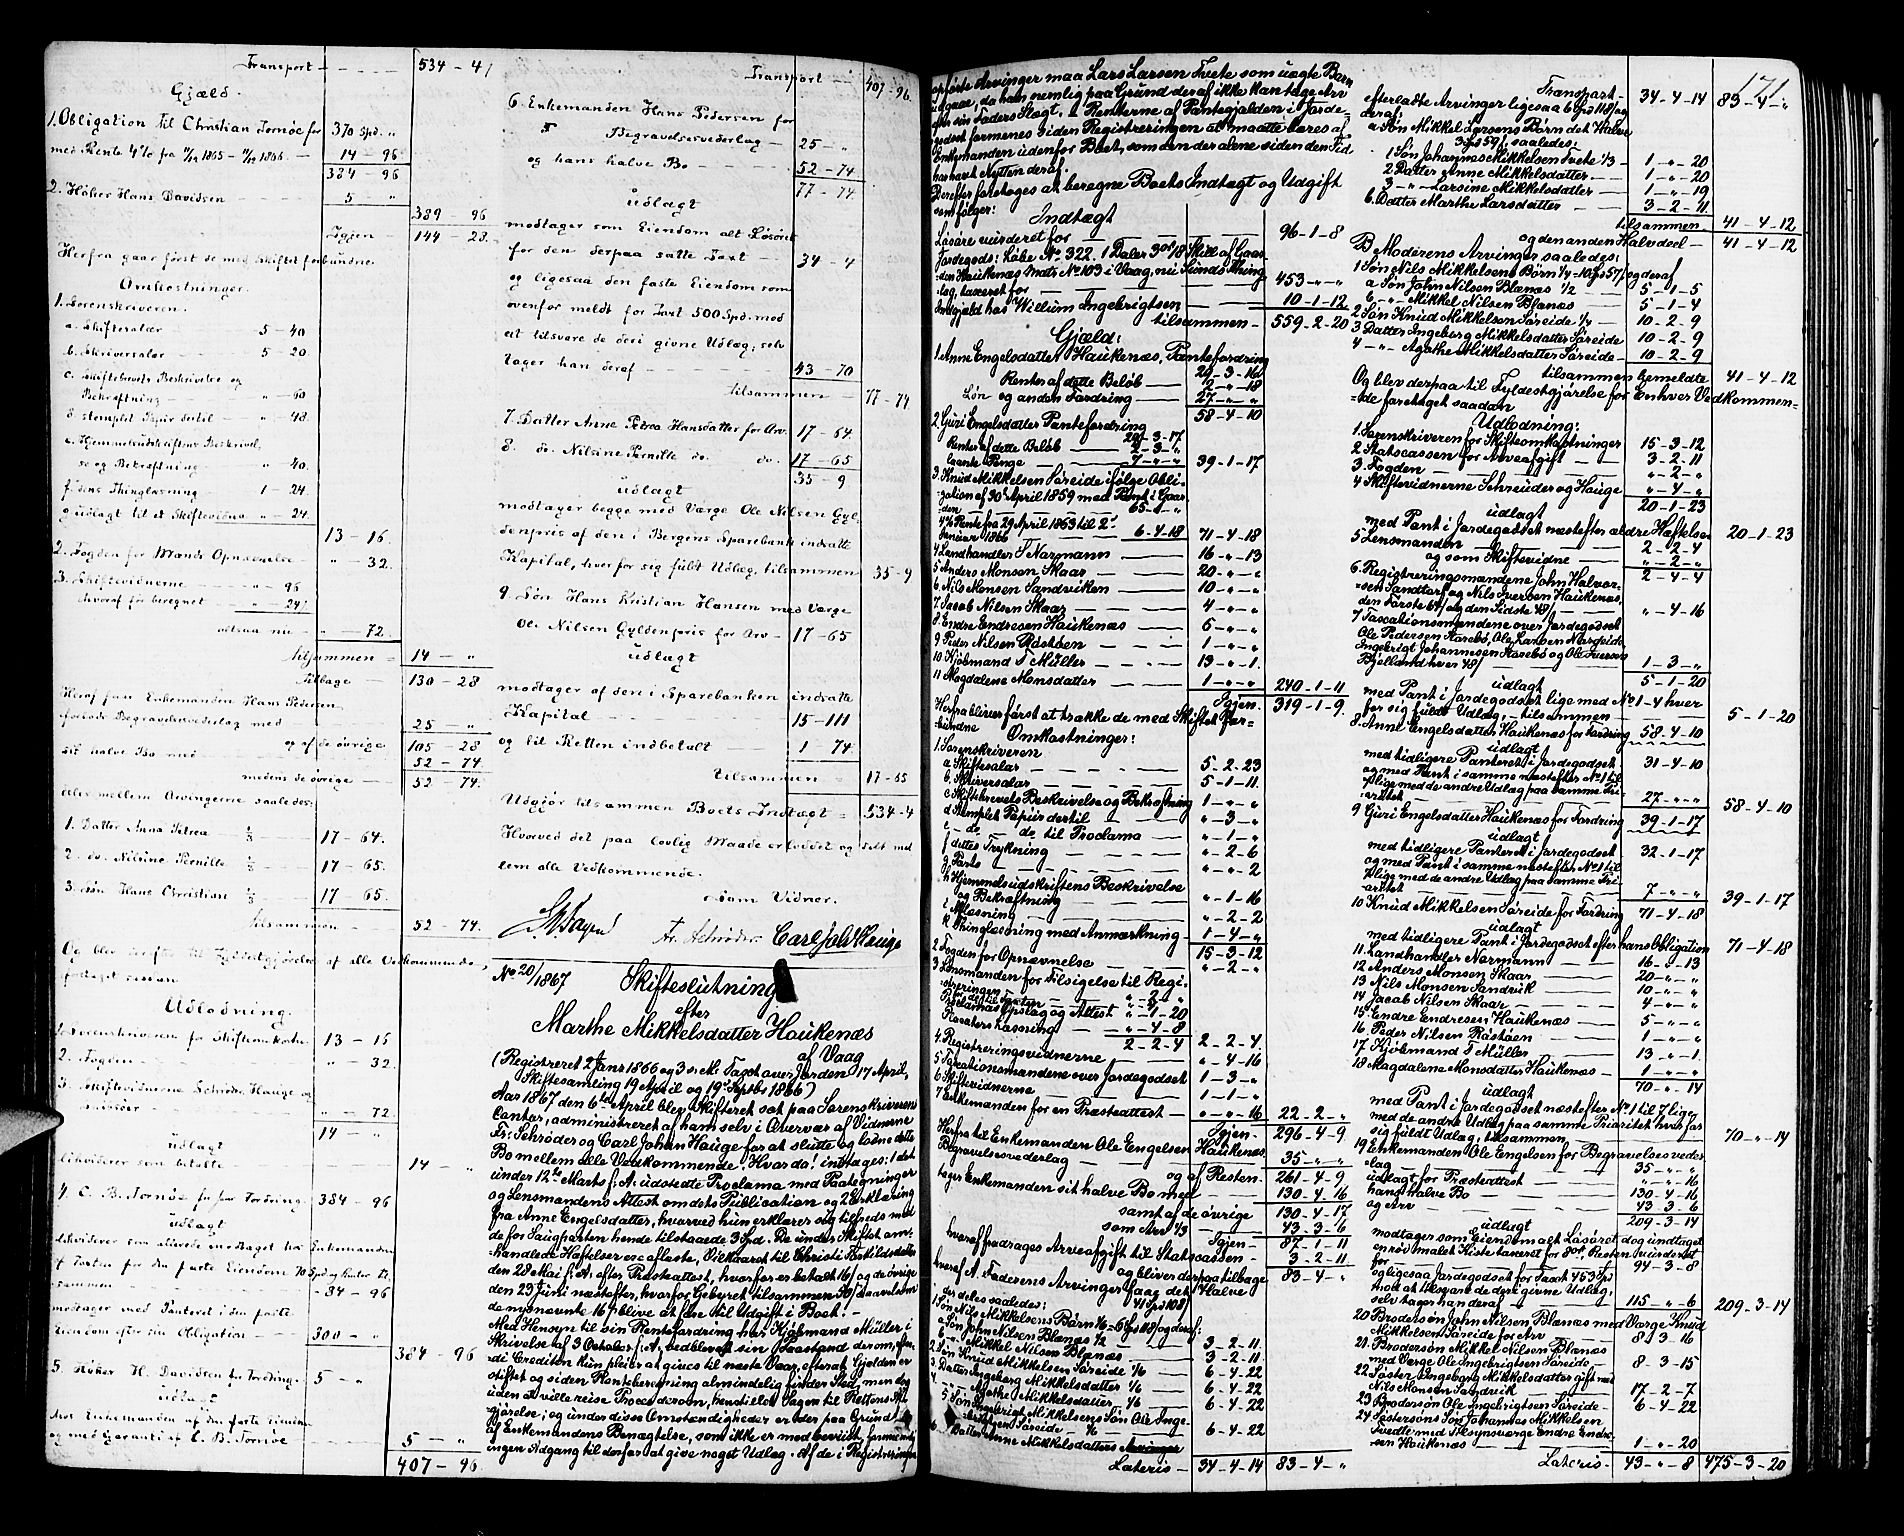 Transport - 534 - 41
Gjæld.
1. Obligation til Christian Tornøe for 370 Spd. "
med Rente 4% fra 11/12 1865 - 11/12 1866 - 14 - 96
384 - 96
2. Høker Hans Davidsen - 5 "
389 - 96
Igjen 144 - 28.
Herfra gaar først de med Skiftet forbundne
Omkostninger.
1. Sorenskriveren.
a. Skiftesalær 5 - 40
b. Skriversalær 5 - 20
c. Skiftebrevets Beskrivelse og
Bekræftning " - 60
d. stemplet Papir dertil - " - 48
e. Hjemmelsudskriftens Beskrivel,
se og Bekræftning " 40.
f. dens Thinglæsning - 1 - 24.
g. udlagt til et Skiftevidne " - 24.
13 - 16.
2. Fogden for Mænds Opnævnelse - " - 32.
3. Skiftevidnerne - " - 96
hvoraf før beregnet - " - 24
altsaa nu - " - 72.
tilsammen = 14 - "
tilbage - 130 - 28
Heraf faar Enkemanden Hans Pedersen
forlods Begravelsesvederlag med 25 - "
og af de øvrige 105 - 28
sit halve Bo med - 52 - 74
medens de øvrige - 52 - 74.
deles mellem Arvingerne saaledes:
1. Datter Anna Petrea 1/3 17 - 64.
2. do. Nilsine Pernille 1/3 17 - 65.
3. Søn Hans Christian 1/3 17 - 65.
tilsammen - 52 - 74.
Og blev derefter til Fyldestgjørelse af alle Vedkommende,
foretaget saadan
Udlodning.
1. Sorenskriveren for Skifteomkostn. 13 - 16
2. Fogden - " - 32
3. Skiftevidnerne Schrøder, Hauge og
" - 72.
14 - "
udlagt
likviderer som betalte - 14 - "
4. C. B. Tornøe for sin Fordring - 384 - 96
udlagt
- 84 - 96
modtager med Panteret i den faste
Eiendom efter sin Obligation - 300 - "
384 - 96
5. Høker H. Davidsen for Fordring - 5 - "
udlagt
hos Enkemanden af den faste Eiendom
og med Garanti af C. B. Tornøe 5 - "
407 - 96
Transport - 407 - 96.
6. Enkemanden Hans Pedersen for
Begravelsesvederlag - 25 - "
og hans halve Bo - 52 - 74
77 - 74
udlagt
modtager som Eiendom alt Løsøret
for den derpaa satte Taxt - 34 - 4
og ligesaa den faste Eiendom som
ovenfor meldt for Taxt 500 Spd. mod
at tilsvare de deri givne Udlæg; selv
tager han deraf - 43 - 70
tilsammen - 77 - 74
7. Datter Anne Petrea Hansdatter for Arv. 17 - 64.
8. do. Nilsine Pernille do. do. 17 - 65
35 - 9
udlagt
modtager begge med Værge Ole Nilsen Gyl,
denpris af den i Bergens Sparebank indsatte
Kapital, hver for sig fuldt Udlæg, tilsammen 35 - 9
9. Søn Hans Kristian Hansen med Værge
Ole Nilsen Gyldenpris for Arv - 17 - 65
udlagt
modtager af den i Sparebanken indsatte
Kapital - 15 - 111
og til Retten indbetalt - 1 - 74.
tilsammen = 17 - 65
Udgjør tilsammen Boets Indtægt = 534 - 4
Hvorved det paa lovlig Maade er luddet og delt mel
lem alle Vedkommende.
som Vidner.
Fr. Schrøder. Carl Joh. Hauge
No 20/1867 Skifteslutning
efter
Marthe Mikkelsdatter Haukenæs
af Vaag
(Registreret 2 Janr 1866 og 3 s. M. Taxt over Jorden 17 April,
Skiftesamling 19 April og 19de Septbr 1866)
Aar 1867 den 6te April blev Skifteret sat paa Sorenskriverens
Contor, administreret af ham selv i Overvær af Vidnerne
Fr. Schrøder og Carl Johan Hauge for at slutte og lodne dette
Bo mellem alle Vedkommende. Hvorda! indtages: 1 det
under 12te Marts f: A: udstedte Proclama med Paategninger
og Lensmandens Attest om dets Publication og 2 Erklæring
fra Anne Engelsdatter, hvorved hun erklærer sig tilfreds med
de for Saugparten hende tilstaaede 3 Spd. - De under Skiftet om,
handlede Hæftelser ere aflæste, Vilkaaret til Christi Torkildsdatter
den 28 Mai f: A: efter Præsteattest, hvorfor er betalt 16/ og de øvrige
den 23 Juni næstefter, hvorfor Gebyret tilsammen 50/
de nævnte 16/ blive at føre til Udgift i Boet. -
Med Hensyn til sin Rentefordring har Kjøbmand Müller i
Skrivelse af 3 October f: A: vedblevet sin Paastand derom, efter,
di Crediten kun pleier at gives til næste Vaar, efterat Gjælden er
stiftet og siden Renteberegning almindelig finder Sted, men dog
uden at ville reise Proces derom, henstiller Sagen til Rettens Af,
gjørelse; og under disse Omstændigheder er der paa Grund
af Enkemandens Benægtelse, som ikke er modbeviist,
ingen Adgang til derfor at give noget Udlæg. Af de i Registreringen
opførte Arvinger maa Lars Larsen Tvete som uægte Barn
udgaae, da han nemlig paa Grund deraf ikke kan tage Arv
efter sin Faders Slægt. - Renterne af Pantegjælden i Jorde-
godset formenes siden Registreringen at maatte bæres af
Enkemanden udenfor Boet, som den der alene siden den Tid
har havt Nytten deraf.
Derefter foretoges at beregne Boets Indtægt og Udgift
som følger:
Indtægt
Løsøre vurderet for - 96 - 1 - 8
Jordegods: Løbe No. 322. 1 Daler 3 ort 18 Skill af Gaar,
den Haukenæs Matr. No 103 i Vaag, nu Sunds Thing
lag, taxeret for - 453 - " - "
Indgjæld hos Willum Ingebrigtsen - 10 - 1 - 12
tilsammen - 559 - 2 - 20
Gjæld:
1. Anne Engelsdatter Haukenæs, Pantefordring
29 - 3 - 16
Renter af dette Beløb - 2 - " - 18
Løn og anden Fordring - 27 - " - "
58 - 4 - 10
2 Guri Engelsdatter Pantefordring
29 - 3 - 17
Renter af dette Beløb - 2 - 3 - "
laante Penge - 7 - " - " 39 - 1 - 17
3. Knud Mikkelsen Søreide ifølge Obli-
gation af 30 April 1859 med Pant i Gaar
den - 65 - " - "
4% Rente fra 29 April 1863 til 2.
Januar 1866 - 6 - 4 - 18 71 - 4 - 18
4 Landhandler T Normann - 16 - " - 13
5 Anders Monsen Skaar - 20 - " - "
6. Nils Monsen Sandviken - 10 - " - "
7. Jacob Nilsen Skaar - 4 - " - "
8. Endre Endresen Haukenæs - 5 - " - "
9 Peder Nilsen Røstøen - 1 - " - "
10 Kjøbmand T Müller - 13 - " - 1.
11 Magdalene Monsdatter - 1 - " - "
240 - 1 - 11
Igjen - 319 - 1 - 9.
Herfra bliver først at trække de med Skiftet for=
bundne Omkostninger:
1. Sorenskriveren
a Skiftesalær - 5 - 2 - 23
b. Skriversalær - 5 - 1 - 11.
c Skiftebrevets Beskrivelse og Bekræftning 1 - " - "
d Stemplet Papiir dertil - " - 3 - "
e - do - do til Proclama - " - 1 - "
f dettes Trykning - " - 2 - 6
g. Porto - " - " - 2
h Hjemmelsudskriftens Beskrivelse
og Bekræftning - " - 1 - 16
i Aflæsning - " - 2 - 2
k Thinglæsning med Anmærkning - 1 - 4 - "
15 - 3 - 12
2 Fogden for Opnævnelse - " - 2 - "
3 Lensmanden for Tilsigelse til Regi,
streringen - " - 2 - "
" - 2 - "
Proclamas Opslag og Attest " - 1 - 20
" - 4 - 8
2 - 2 - 4 2 - 2 - 4.
4. Registreringsvidnerne - " - 4 - 16
5 Taxationsmændene over Jordegodset 1 - 3 - "
6 Skiftevidnerne - 1 - 1 - "
7 Enkemanden for en Præsteattest - " - " - 16 22 - 2 - "
Igjen - 296 - 4 - 9.
Herfra til Enkemanden Ole Engelsen Haukenæs
Begravelsesvederlag - 35 - " - "
og af Resten - 261 - 4 - 9
tager Enkemanden sit halve Bo med - 130 - 4 - 16
samt af de øvrige 130 - 4 - 17
som Arv 1/3 - 43 - 3 - 6
Igjen - 87 - 1 - 11
hvoraf fradrages Arveafgift til Statscassen 3 - 2 - 11
og bliver derpaa tilbage 83 - 4 - "
hvoraf A. Faderens Arvinger faae det Halve
der deles saaledes: 41 Spd 108/
1 Søn Nils Mikkelsens Børn 1/6 = 6 Spd 118/ og deraf:
a Søn John Nilsen Blænæs 1/2 - 3 - 2 - 11
b - " - Mikkel Nilsen Blænæs - 3 - 2 - 11.
2 Søn Knud Mikkelsen Søreide 1/6 - 6 - 4 - 22
3 Datter Ingeborg Mikkelsdatter 1/6 - 6 - 4 - 22
4 - " - Agathe Mikkelsdatter 1/6 - 6 - 4 - 22
5 Søn Ingebrigt Mikkelsens Søn Ole Inge-
brigtsen Søreide - 1/6 - 6 - 4 - 22
6 Datter Anne Mikkelsdatters Arvinger
Lateris - 34 - 4 - 14 83 - 4 - "
171
Transport - 34 - 4 - 14 83 - 4 - "
efterladte Arvinger ligesaa 6 Spd 118/ og
deraf:
a Søn Mikkel Larsens Børn det Halve
3 Spd 59/, saaledes:
1 Søn Johannes Mikkelsen Tvete 1/3 - 1 - " - 20
2 Datter Anne Mikkelsdatter - 1 - " - 20
3 - " - Larsine Mikkelsdatter - 1 - " - 19
b. Datter Marthe Larsdatter - 3 - 2 - 11
tilsammen 41 - 4 - 12
og den anden Halvdeel - 41 - 4 - 12
B) Moderens Arvinger saaledes:
1 Søn Nils Mikkelsens Børn 1/4 = 10 Spd 57/, og deraf
a Søn John Nilsen Blænæs 1/2 - 5 - 1 - 5
b - " - Mikkel Nilsen Blænæs - 5 - 1 - 4
2 Søn Knud Mikkelsen Søreide 1/4 - 10 - 2 - 9
3 Datter Ingeborg Mikkelsdatter Søreide 10 - 2 - 9
4 - " - Agathe Mikkelsdatter Søreide - 10 - 2 - 9
tilsammen bemeldte 41 - 4 - 12
Og blev derpaa til Fyldestgjørelse for Enhver Vedkommen=
=de foretaget saadan
Udlodning:
1. Sorenskriveren for Skifteomkostninger 15 - 3 - 12
2 Statscassen for Arveafgift - 3 - 2 - 11
3. Fogden - " - 2 - "
4 Skiftevidnerne Schreuder og Hauge " - 4 - "
20 - 1 - 23
udlagt
med Pant i Jordegodset næstefter ældre Hæftelser 20 - 1 - 23
5 Lensmanden - 2 - 2 - 4
og som Skiftevidne - " - 2 - "
2 - 4 - 4
6. Registreringsmændene John Halvor-
sen Sandtorf og Nils Iversen Haukenæs,
den Første 64/ og den Sidste 48/ - " - 4 - 16
7 Taxationsmændene over Jordegodset
Ole Pedersen Storebø, Ole Larsen Nordeide
Ingebrigt Johannesen Storebø og Ole Iversen
Bjelland hver 48/ - 1 - 3 - "
5 - 1 - 20
udlagt
med Pant i Jordegodset lige med No 1-4 hver
for sig fuldt Udlæg, - tilsammen - 5 - 1 - 20
8. Anne Engelsdatter Haukenæs for Fordring 58 - 4 - 10
udlagt
med tidligere Panteret i Jordegodset 31 - 4 - 10
og med Pant i samme næstefter No 1 til
7 lige med de andre Udlæg paa samme Pri-
oritet - 27 - " - " 58 - 4 - 10
9 Guri Engelsdatter Haukenæs for Fordring 39 - 1 - 17
udlagt
med tidligere Panteret i Jordegodset 32 - 1 - 17
og med Pant i samme næstefter No 1 til
7 lige med de andre Udlæg paa samme Pri-
oritet - 7 - " - " 39 - 1 - 17
10 Knud Mikkelsen Søreide for Fordring 71 - 4 - 18
udlagt
med tidligere Pant i Jordegodset efter hans Obligation 71 - 4 - 18
11. Landhandler Normann - 16 - " - 13
12 Anders Monsen Skaar - 20 - " - "
13 Nils Monsen Sandvik - 10 - " - "
14 Jacob Nilsen Skaar - 4 - " - "
15 Endre Endresen Haukenæs - 5 - " - "
16 Peder Nilsen Røstøen - 1 - " - "
17 Kjøbmand T Müller - 13 - " - 1.
18 Magdalene Monsdatter Haukenæs - 1 - " - "
70 - " - 14
udlagt
med Pant i Jordegodset næstefter No 1 til 7 lige
med de andre Udlæg paa samme Prioritet hver for
sig fuldt Udlæg, tilsammen - 70 - " - 14
19 Enkemanden Ole Engelsen for Begravelsesveder
lag - 35 - " - "
udlagt for Præsteattest - " - " - 16
hans halve Bo - 130 - 4 - 16
og arv - 43 - 3 - 6
209 - 3 - 14
udlagt
modtager som Eiendom alt Løsøret dog indtaget
en rød malet Kiste taxeret for 8 ort, Resten vurderet
for - 94 - 3 - 8
og ligesaa Jordegodset for Taxt 453 Spd
mod at tilsvare de deri givne Udlæg,
selv tager han deraf - 115 - " - 6 209 - 3 - 14
20 Brodersøn John Nilsen Blænæs med Værge Knud
Mikkelsen Søreide for Arv - 8 - 3 - 16
21. Brodersøn Mikkel Nilsen Blænæs
med Værge Ole Ingebrigtsen Søreide - 8 - 3 - 15
22 Søster Ingeborg Mikkelsdatter gift med
Nils Monsen Sandvik - 17 - 2 - 7
23 Brodersøn Ole Ingebrigtsen Søreide - 6 - 4 - 22
24 Søstersøns Søn Johannes Mikkelsen
Tvedte med Tilsynsværge Endre Endre-
sen Haukenæs - 1 - " - 20
Lateris - 43 - " - 8 475 - 3 - 20